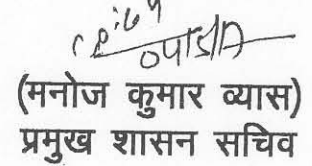 (मनोज कुमार व्यास)
प्रमुख शासन सचिव